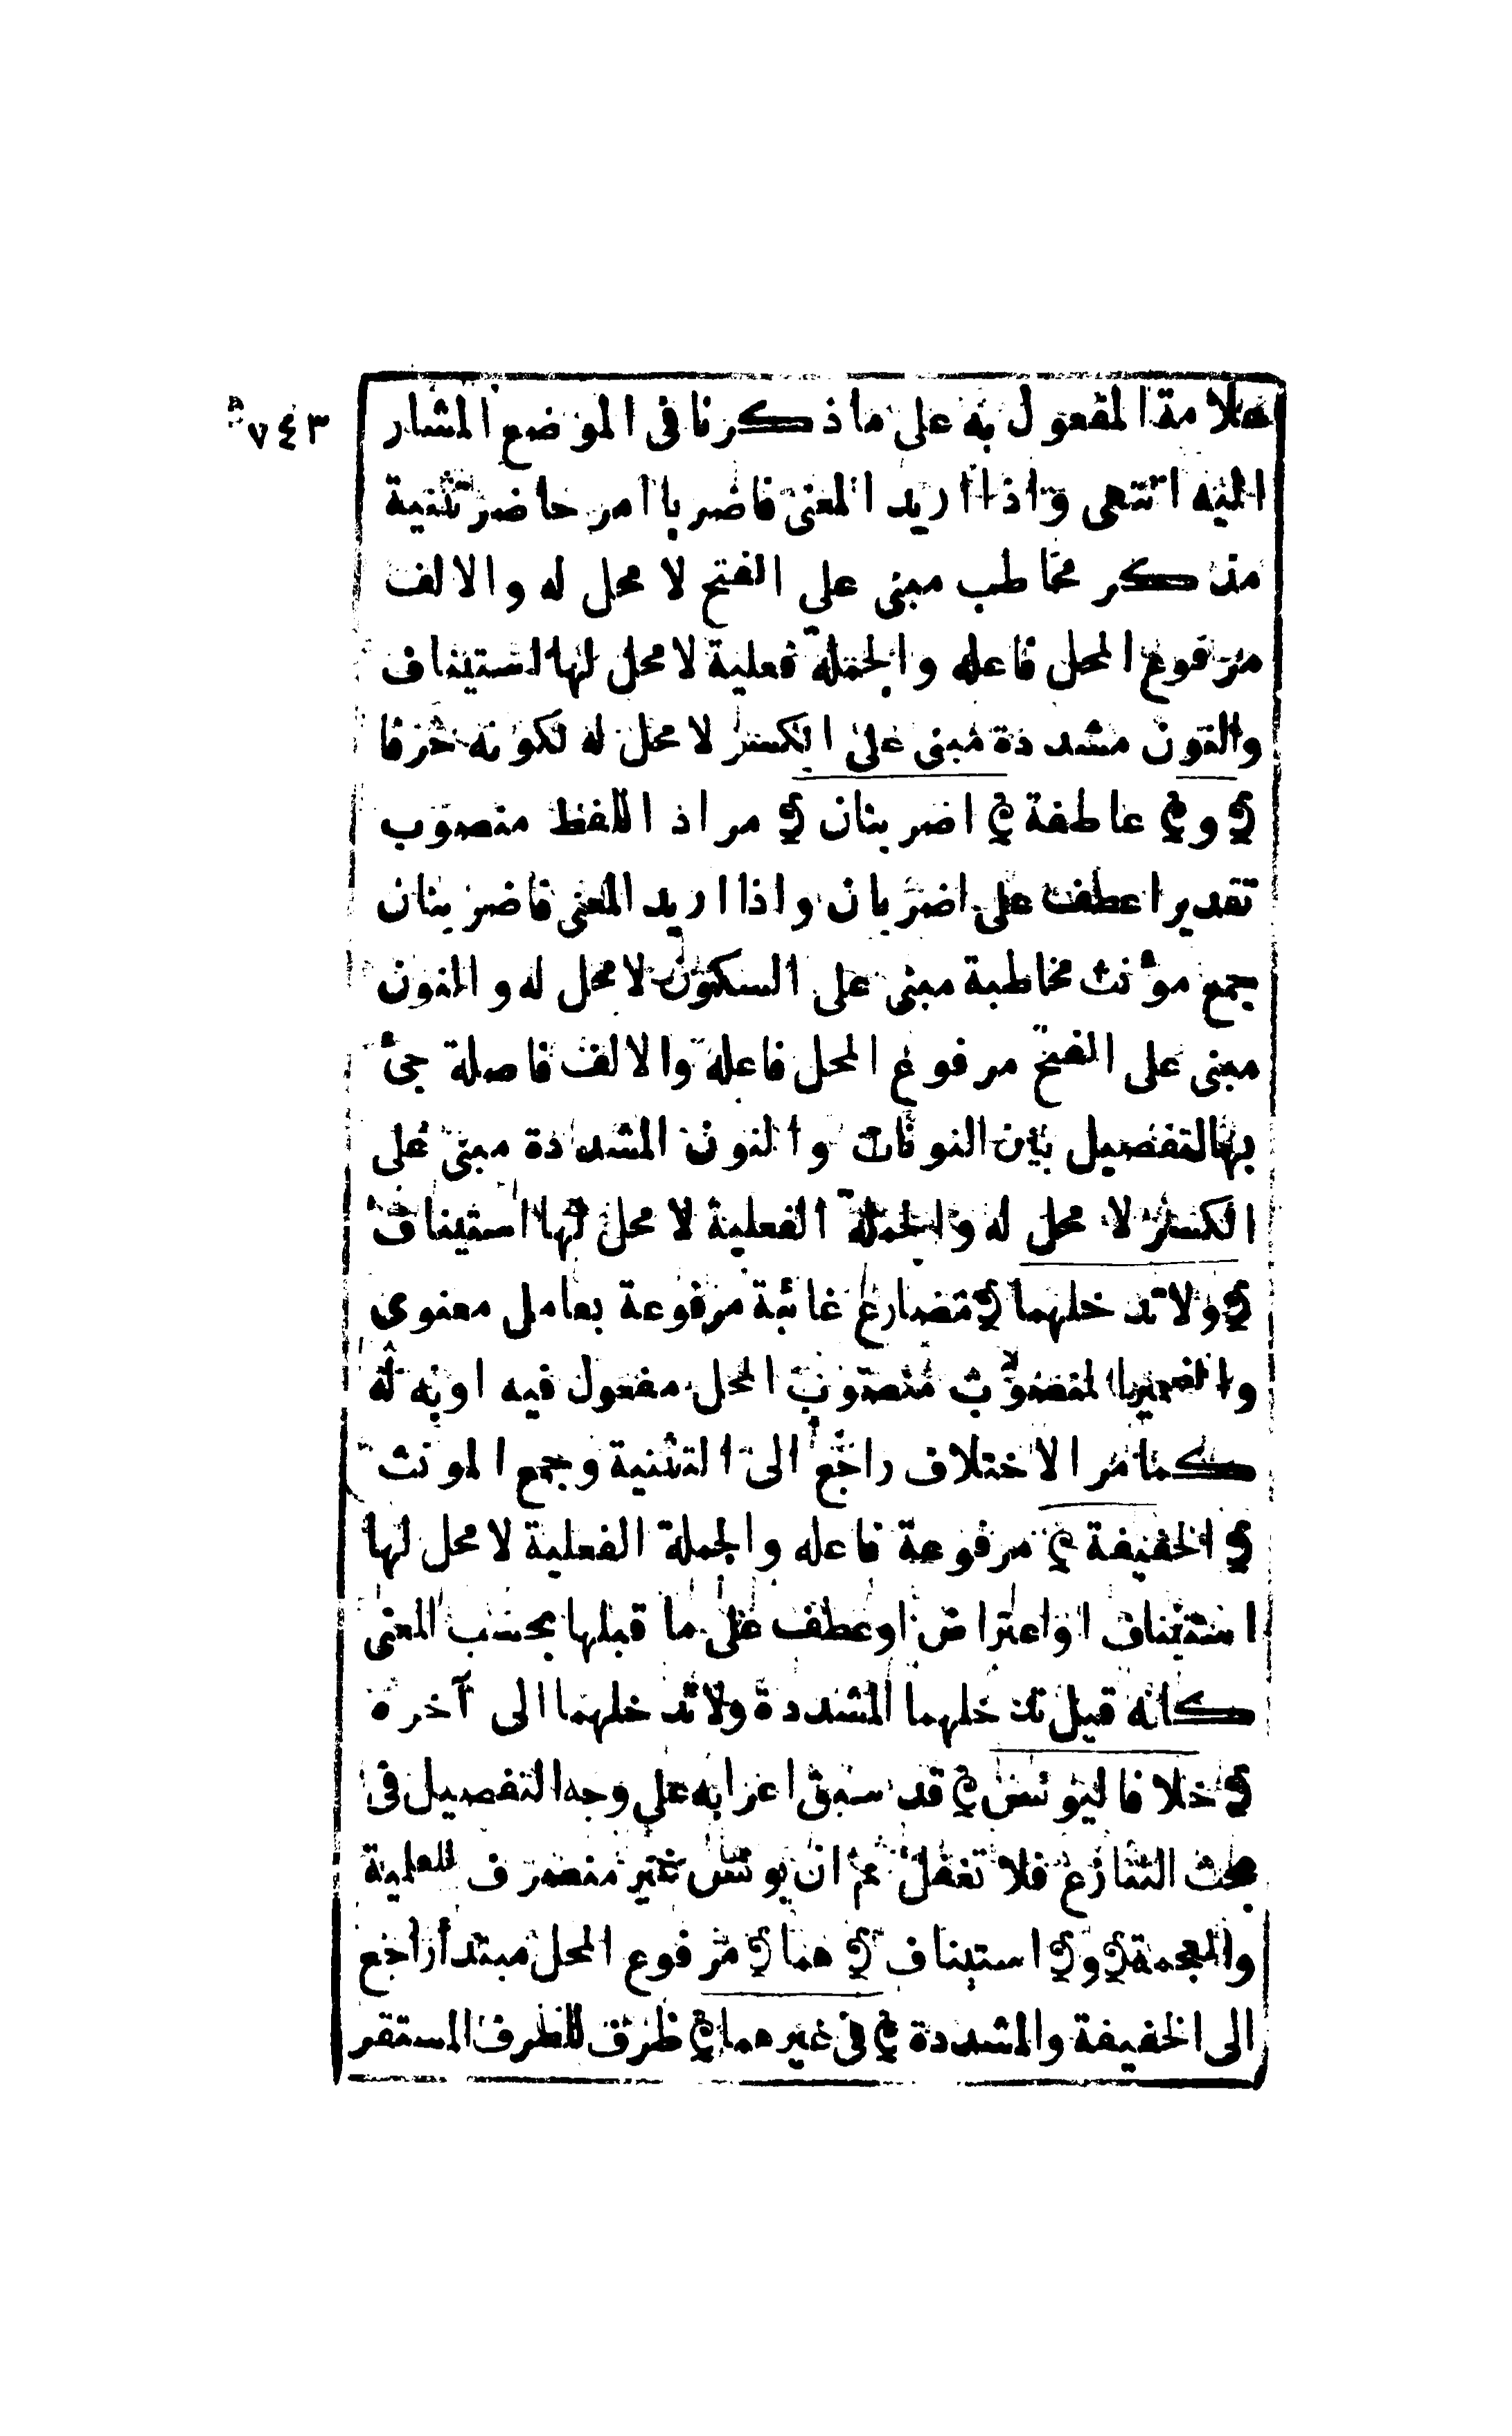 ٧٤٣
علامة المفعول به على ما ذكرنا فى الموضع المشار
اليه انتهى واذا اريد المعنى فاضربا امر حاضر تثنية
مذكر مخاطب مبنى على الفتح لا محل له والالف
مرفوع المحل فاعله والجملة فعلية لا محل لها استيناف
والنون مشددة مبنى على الكسر لا محل له لكونه حرفا
﴿ و ﴾ عاطفة ﴿ اضربنان ﴾ مراد اللفظ منصوب
تقديرا عطف على اضربان واذا اريد المعنى فاضربنان
جمع مؤنث مخاطبة مبنى على السكون لا محل له والنون
مبنى على الفتح مرفوع المحل فاعله والالف فاصلة جئ
بها لتفصيل بين النونات والنون المشددة مبنى على
الكسر لا محل له والجملة الفعلية لا محل لها استيناف
﴿ ولا تدخلهما ﴾ مضارع غائبة مرفوعة بعامل معنوى
والضمير المنصوب منصوب المحل مفعول فيه او به له
كما مر الاختلاف راجع الى التثنية وجمع المونث
﴿ الخفيفة ﴾ مرفوعة فاعله والجملة الفعلية لا محل لها
استيناف او اعتراض او عطف على ما قبلها بحسب المعنى
كانه قيل تدخلهما المشددة ولا تدخلهما الى آخره
﴿ خلافا ليونس ﴾ قد سبق اعرابه على وجه التفصيل فى
بحث التنازع فلا تغفل ثم ان يونس غير منصرف للعلمية
والعجمة ﴿ و ﴾ استيناف ﴿ هما ﴾ مرفوع المحل مبتدأ راجع
الى الخفيفة والمشددة ﴿ فى غيرهما ﴾ ظرف للظرف المستقر